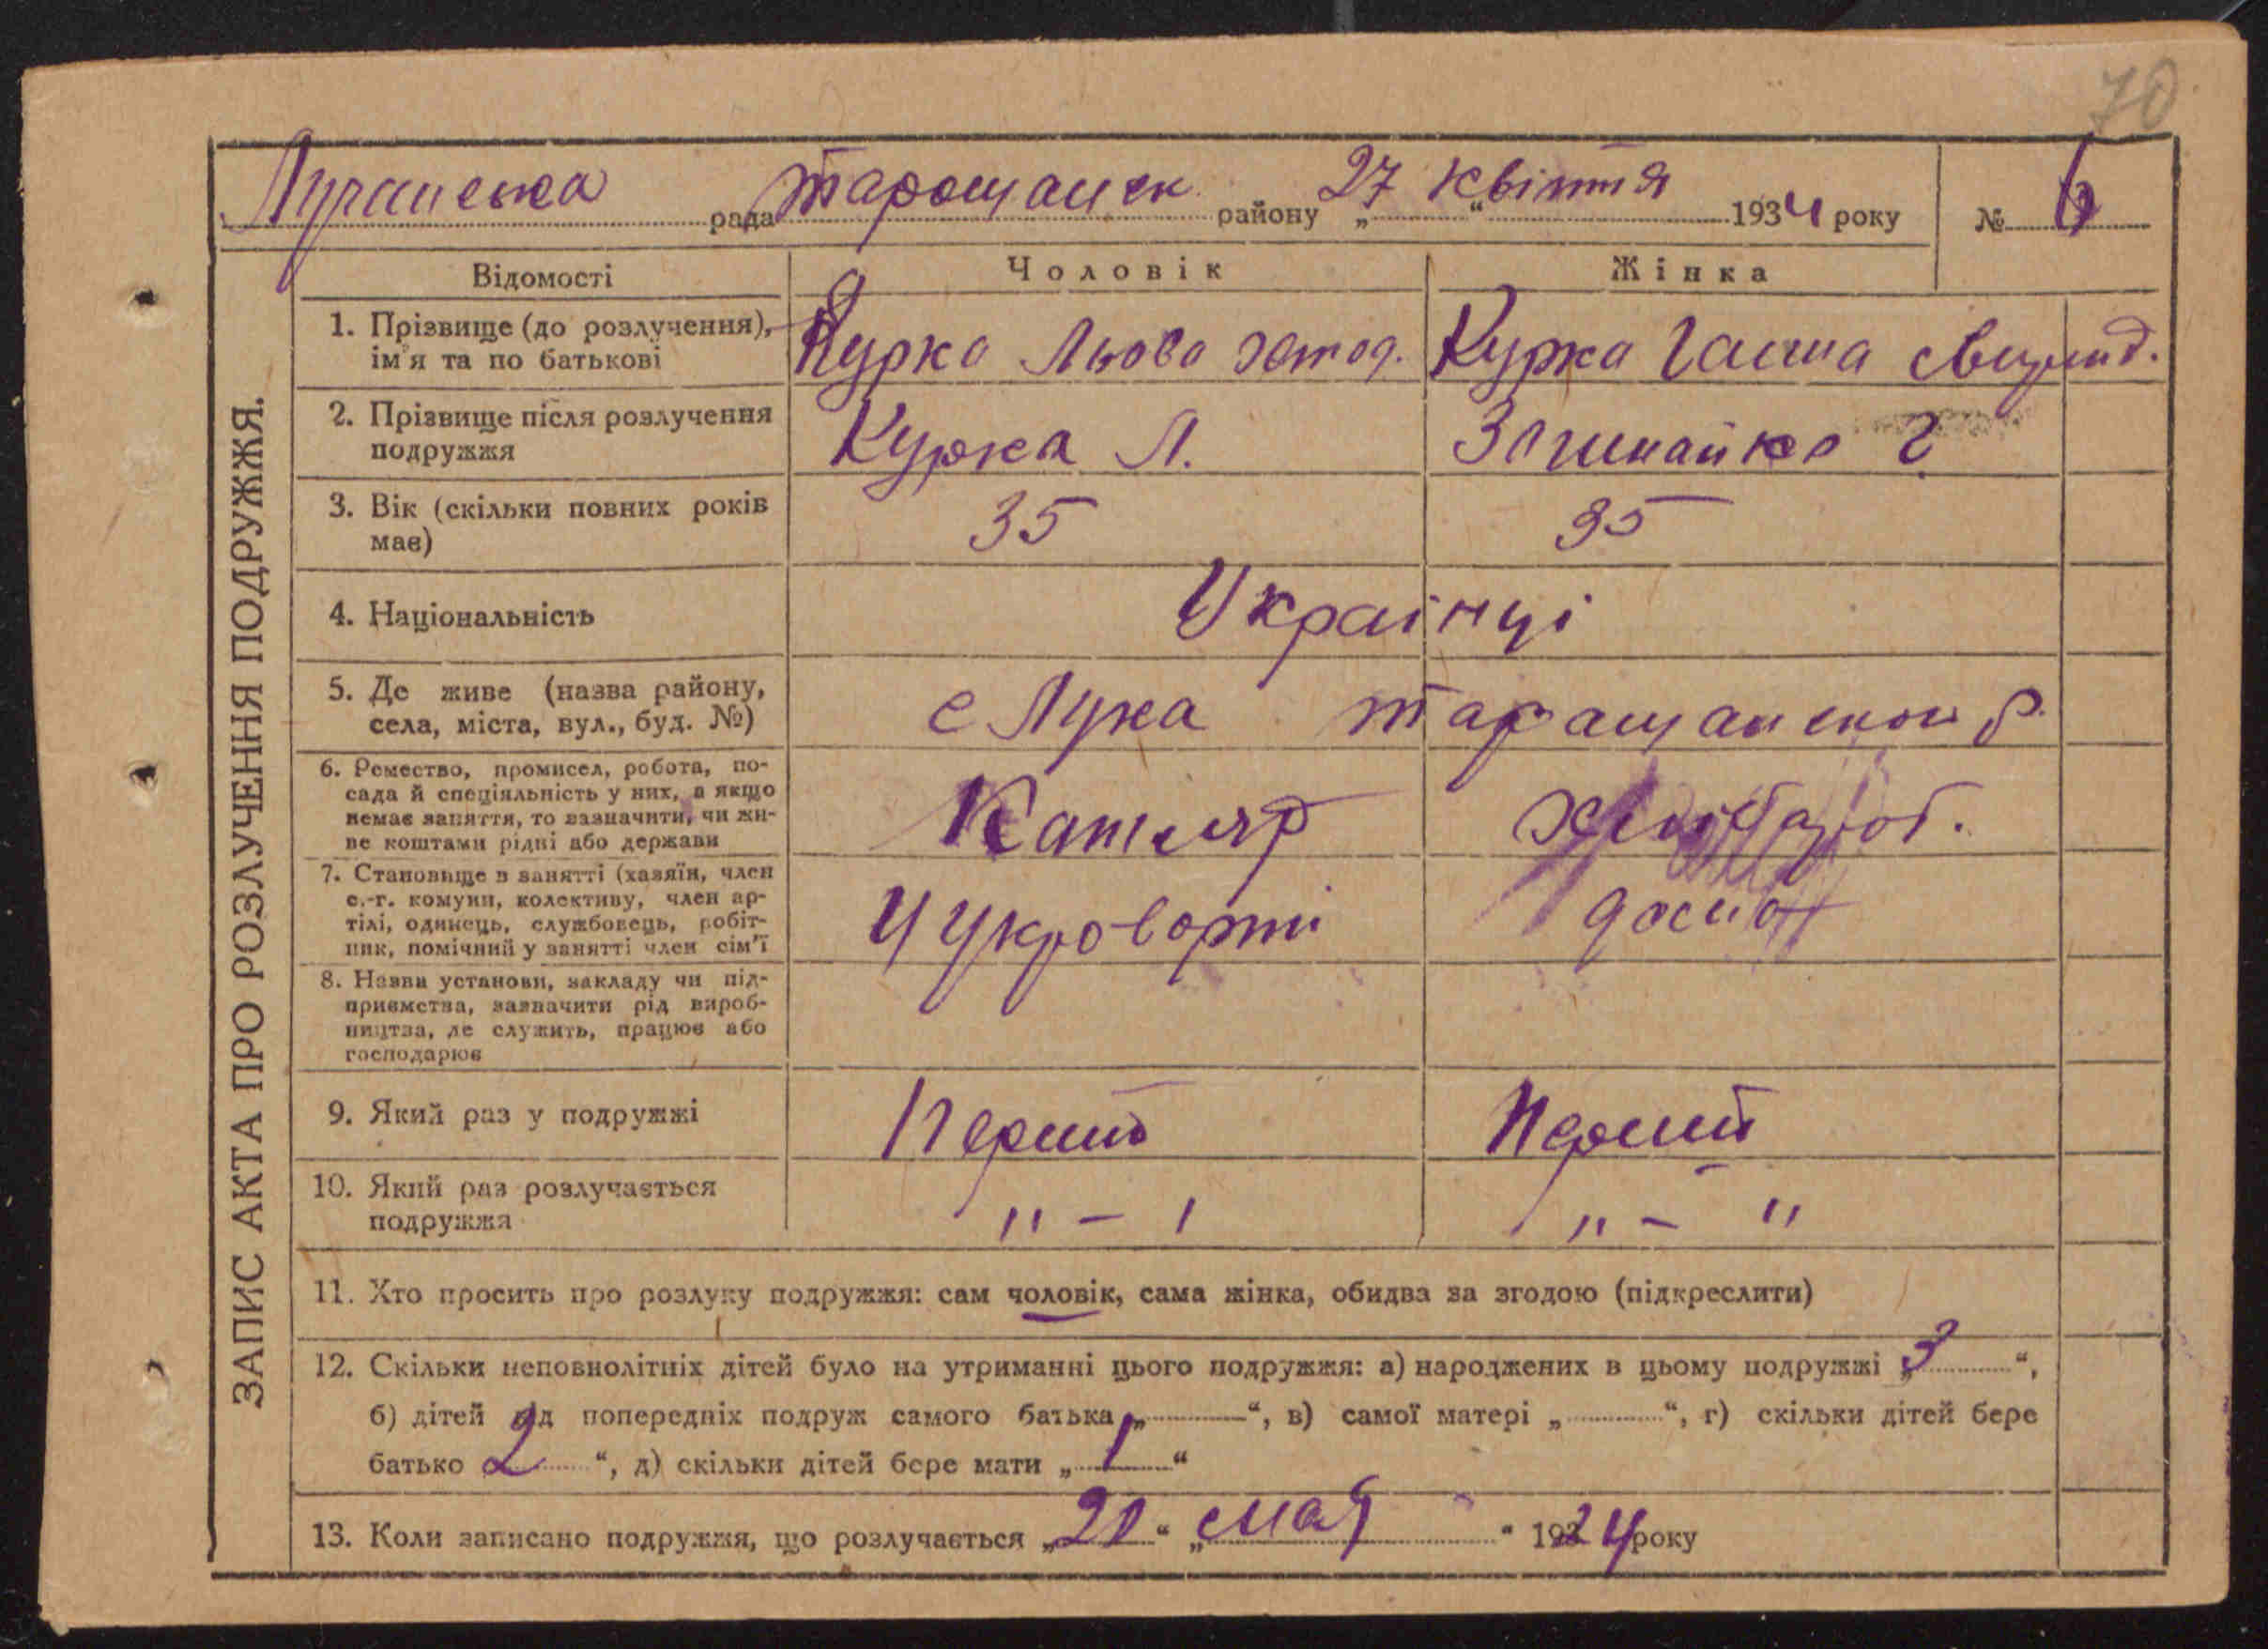 70
Лучанська рада Таращанск району „27“ Квітня 1934 року № 6
ЗАПИС АКТА ПРО РОЗЛУЧЕННЯ ПОДРУЖЖЯ.
Відомості Чоловік Жінка
1. Прізвище (до розлучення), Курка Льова Курка Ганна
ім'я та по батькові
2. Прізвище після розлучення Курка Л. Г
подружжя
3. Вік (скільки повних років 35 35
має)
4. Національність Украінці
5. Де живе (назва району, с Лука Таращанскои р.
села, міста, вул., буд. №)
6. Ремество, промисел, робота, по-
сада й спеціяльність у них, а якщо
немає заняття, то зазначити, чи жи-
ве коштами рідні або держави
7. Становище в занятті (хазяїн, член
с.-г. комуни, колективу, член ар-
тілі, одинець, службовець, робіт-
ник, помічний у занятті член сім'ї
8. Назва установи, закладу чи під-
приємства, зазначити рід вироб-
ництва, де служить, працює або
господарює
9. Який раз у подружжі Перший Перший
10. Який раз розлучається „ – ı „ – "
подружжя
11. Хто просить про розлуку подружжя: сам чоловік, сама жінка, обидва за згодою (підкреслити)
12. Скільки неповнолітніх дітей було на утриманні цього подружжя: а) народжених в цьому подружжі „3“,
б) дітей від попередніх подруж самого батька „ “, в) самої матері „ “, г) скільки дітей бере
батько „2“, д) скільки дітей бере мати „1“
13. Коли записано подружжя, що розлучається „20“ „мая“ 1924 року